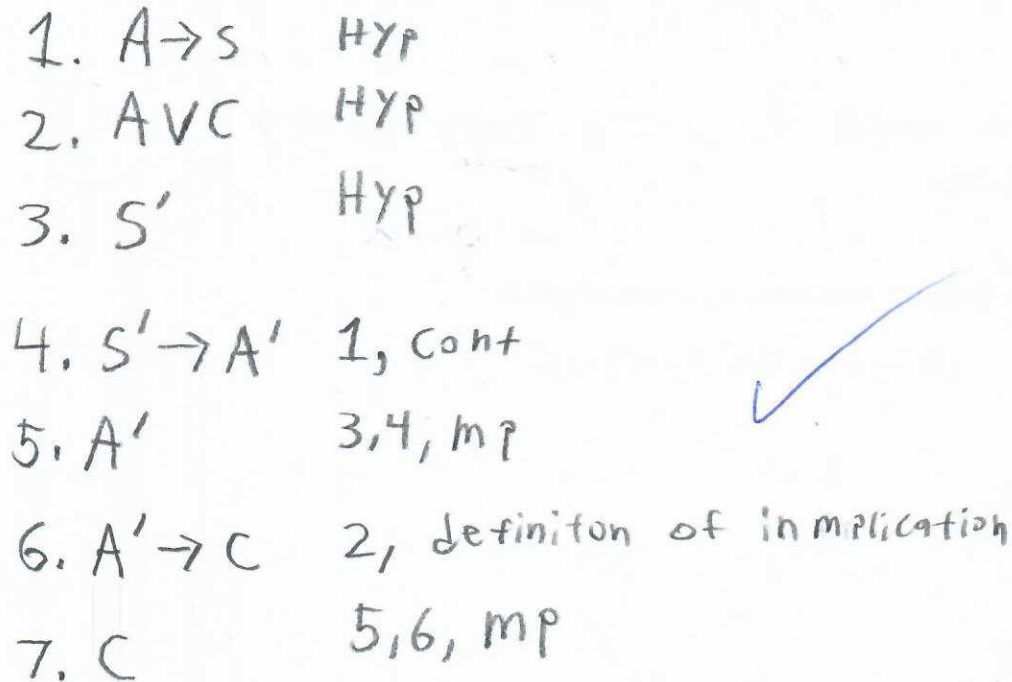 1. A→S Hyp
2. AVC Hyp
3. S' Hyp
4. S'→A' 1, cont
5. A' 3,4, mp
6. A'→C 2, definiton of inmplication
7. C 5,6, mp